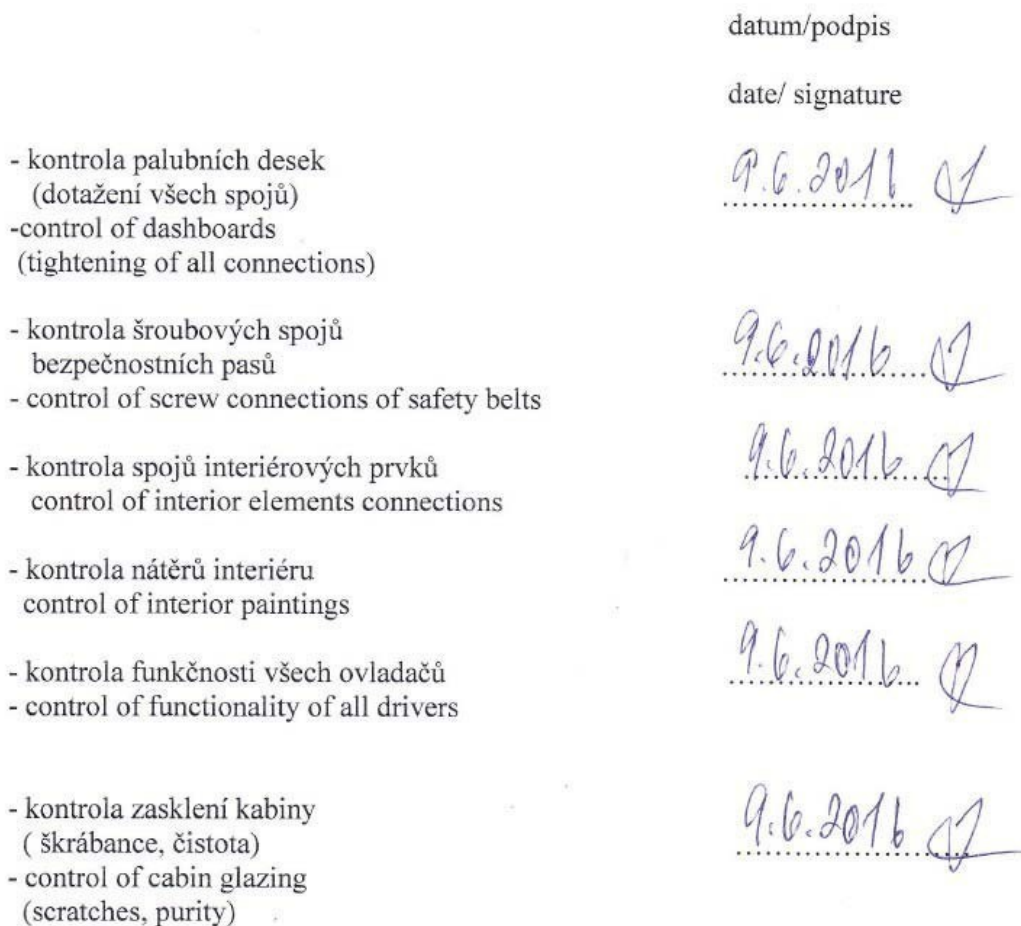 datum/podpis
date/ signature
- kontrola palubních desek
(dotažení všech spojů)
9.6.2016
-control of dashboards
(tightening of all connections)
- kontrola šroubových spojů
bezpečnostních pasů
9.6.2016
- control of screw connections of safety belts
- kontrola spojů interiérových prvků
9.6.2016
control of interior elements connections
- kontrola nátěrů interiéru
9.6.2016
control of interior paintings
- kontrola funkčnosti všech ovladačů
9.6.2016
- control of functionality of all drivers
- kontrola zasklení kabiny
( škrábance, čistota)
9.6.2016
- control of cabin glazing
(scratches, purity)